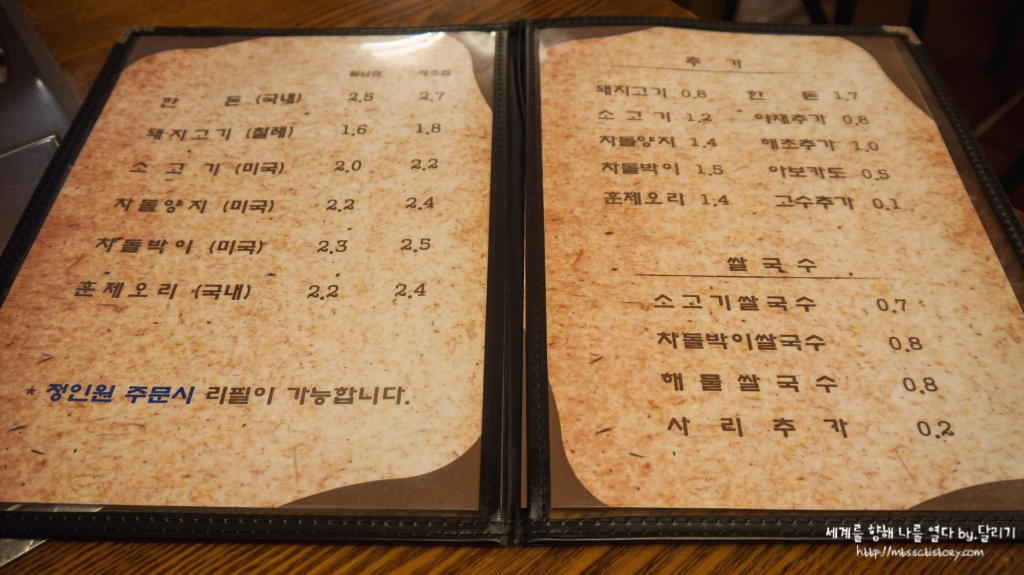 월남쌈 해초쌈
한 돈 (국내) 2.5 2.7
돼지고기 (칠레) 1.6 1.8
소 고 기 (미국) 2.0 2.2
차돌양지 (미국) 2.2 2.4
차돌박이 (미국) 2.3 2.5
훈제오리 (국내) 2.2 2.4
* 정인원 주문시 리필이 가능합니다.
추 가
돼지고기 0.8 한 돈 1.7
소 고 기 1.2 야채추가 0.8
차돌양지 1.4 해초추가 1.0
차돌박이 1.5 아보카도 0.5
훈제오리 1.4 고수추가 0.1
쌀 국 수
소고기쌀국수 0.7
차돌박이쌀국수 0.8
해 물 쌀 국 수 0.8
사 리 추 가 0.2
세계를 향해 나를 열다 by.달리기